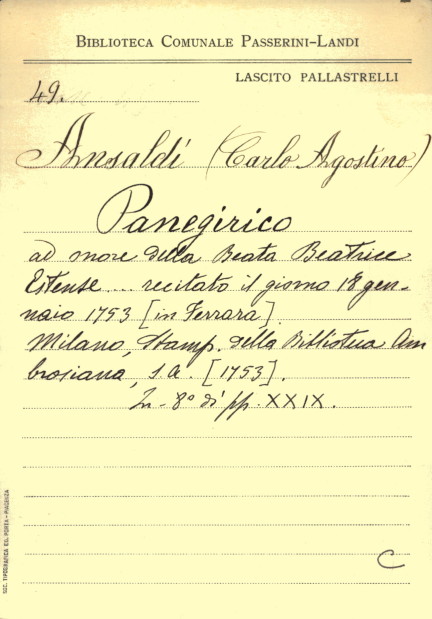 BIBLIOTECA COMUNALE PASSERINI-LANDI
LASCITO PALLASTRELLI
49.
Ansaldi (Carlo Agostino)
Panegirico
ad onore della Beata Beatrice
Estense ... recitato il giorno 18 gen-
naio 1753 [in Ferrara]
Milano, Stamp. della Biblioteca Am
brosiana, s.a. [1753].
In-8° di pp. XXIX.
C
SOC. TIPOGRAFICA ED. PORTA - PIACENZA